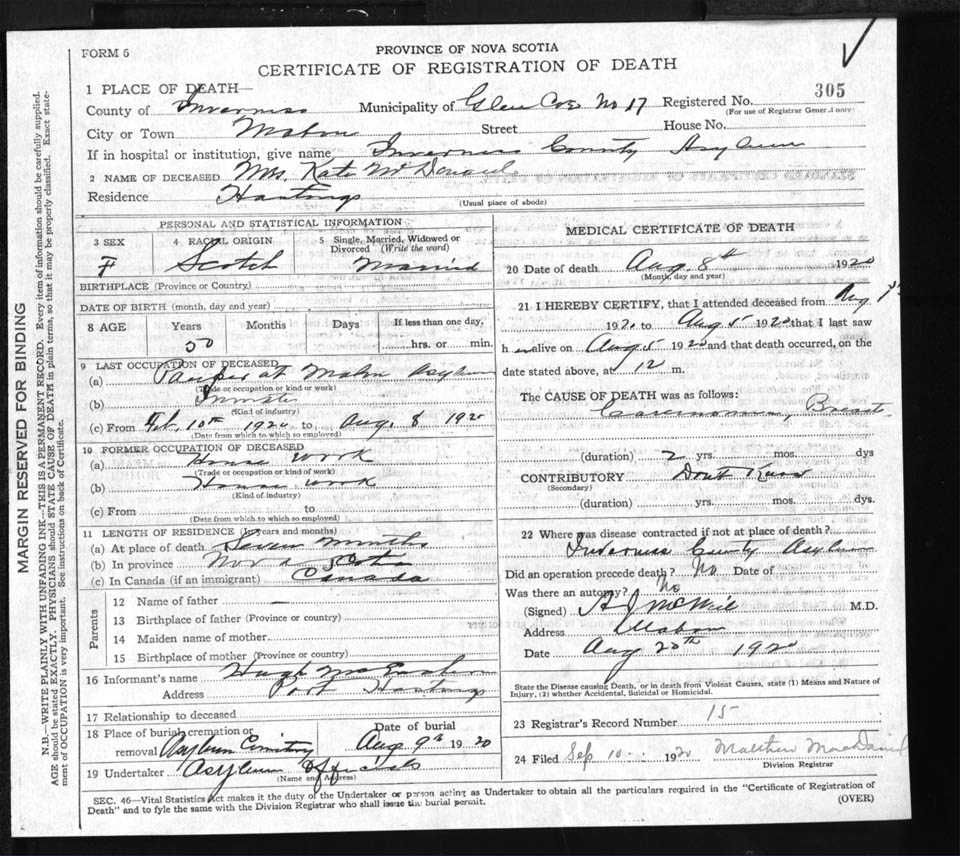 FORM 6
PROVINCE OF NOVA SCOTIA
CERTIFICATE OF REGISTRATION OF DEATH
1 PLACE OF DEATH—
County of Inverness Municipality of Glen Coe No 17 Registered No. 305
(For use of Registrar General only)
City or Town Mabou Street House No.
If in hospital or institution, give name Inverness County Asylum
2 NAME OF DECEASED Mrs. Kate McDonald
Residence Hastings
(Usual place of abode)
PERSONAL AND STATISTICAL INFORMATION
3 SEX 4 RACIAL ORIGIN 5 Single, Married, Widowed or Divorced (Write the word)
F Scotch Married
BIRTHPLACE (Province or Country)
DATE OF BIRTH (month, day and year)
8 AGE Years Months Days If less than one day,
50 hrs. or min.
9 LAST OCCUPATION OF DECEASED
(a) Pauper at Mabou Asylum
(Trade or occupation or kind or work)
(b) Inmate
(Kind of industry)
(c) From Feb. 10th 1920 to Aug. 8 1920
(Date from which to which so employed)
10 FORMER OCCUPATION OF DECEASED
(a) House work
(Trade or occupation or kind of work)
(b) House work
(Kind of industry)
(c) From to
(Date from which to which so employed)
11 LENGTH OF RESIDENCE (In years and months)
(a) At place of death Seven Months
(b) In province Nova Scotia
(c) In Canada (if an immigrant) Canada
Parents
12 Name of father —
13 Birthplace of father (Province or country)
14 Maiden name of mother
15 Birthplace of mother (Province or country)
16 Informant's name Hugh
Address Port Hastings
17 Relationship to deceased
18 Place of burial, cremation or removal Asylum Cemetery Date of burial Aug 9th 1920
19 Undertaker Asylum Officials
(Name and Address)
MEDICAL CERTIFICATE OF DEATH
20 Date of death Aug 8th 1920
(Month, day and year)
21 I HEREBY CERTIFY, that I attended deceased from Aug 1st
1920 to Aug 5 1920 that I last saw
h er alive on Aug 5 1920 and that death occurred, on the
date stated above, at 12 m.
The CAUSE OF DEATH was as follows:
Carcinoma, Breast
(duration) 2 yrs. mos. dys
CONTRIBUTORY Dont Know
(Secondary)
(duration) yrs. mos. dys.
22 Where was disease contracted if not at place of death?
Inverness County Asylum
Did an operation precede death? No Date of
Was there an autopsy? No
(Signed) A J McNeil M.D.
Address
Date Aug 20th 1920
State the Disease causing Death, or in death from Violent Causes, state (1) Means and Nature of
Injury, (2) whether Accidental, Suicidal or Homicidal.
23 Registrar's Record Number 15
24 Filed Sep 10 1920 Matthew
Division Registrar
SEC. 46—Vital Statistics Act makes it the duty of the Undertaker or person acting as Undertaker to obtain all the particulars required in the "Certificate of Registration of
Death" and to fyle the same with the Division Registrar who shall issue the burial permit.
(OVER)
MARGIN RESERVED FOR BINDING
N.B.—WRITE PLAINLY WITH UNFADING INK—THIS IS A PERMANENT RECORD. Every item of information should be carefully supplied.
AGE should be stated EXACTLY. PHYSICIANS should STATE CAUSE OF DEATH in plain terms, so that it may be properly classified. Exact state-
ment of OCCUPATION is very important. See instructions on back of Certificate.